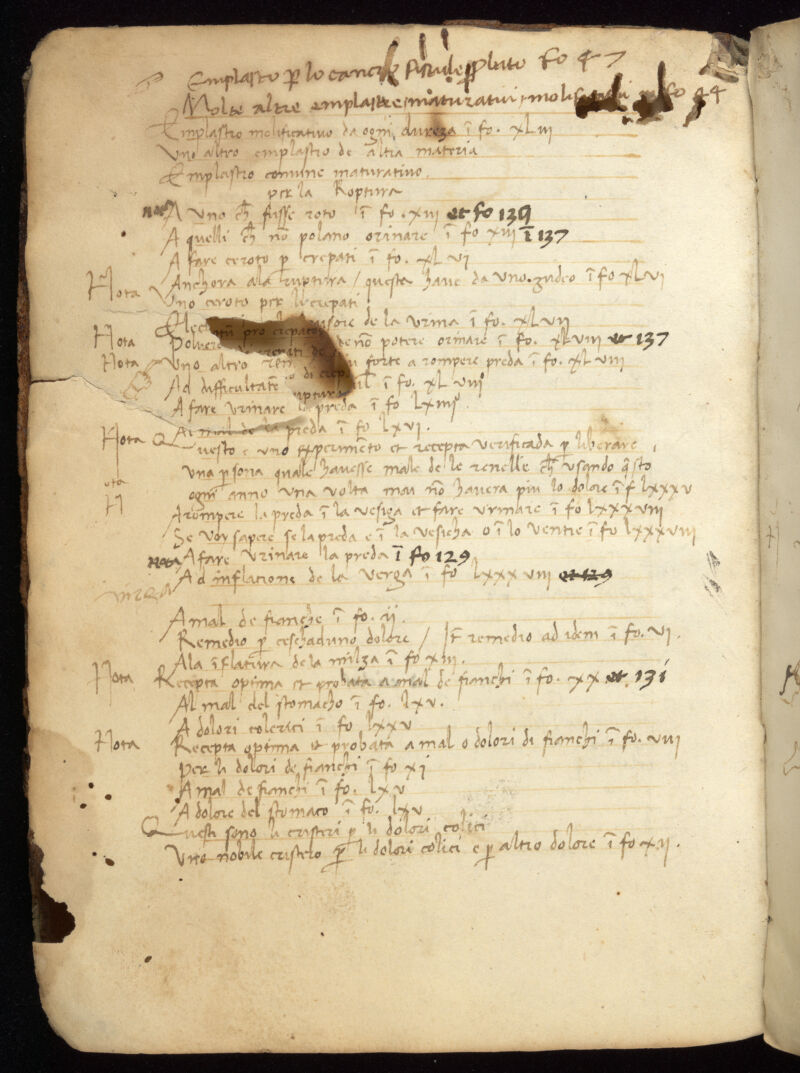 Emplastro p̱ lo cancro fistule fo 47
Molte altre emplastre maturativi fo 44
Emplastro molificativo da ogni dureza ī fo. xLvi
Uno altro emplastro de altra materia
Emplastro comune maturativo.
per la Roptura
A uno ch̄ fusse roto ī fo. xvi et fo 139
A quelli ch̄ nō polano orinare ī fo xvii ī 137
A fare ceroto p̱ crepati ī fo. xL vi
Nota Anchora ala ruptura / questa have da uno. zudeo ī fo xLvi
Uno ceroto per li crepati
de la urina ī fo. xLvii
Nota Polvere nō potere orinare ī fo. xLviii et 137
Nota Uno altro forte a rompere preda ī fo. xL viii
Ad difficultatē ī fo. xL viiii
A fare urinare la preda ī fo Lxiiii
Al mal de la preda ī fo Lxvi.
Nota Questo e uno experimēto et recepta verificada p̱ liberare
una p̱sona quale havesse male de le renelle ch̄ usando q̄sto
Nota ogni anno una volta mai nō havera piu lo dolore ī f Lxxxv
A rompere la preda ī la vesiga et fare urinare ī fo Lxxxviii
Se voi sapere se la preda e ī la vesicha o ī lo ventre ī fo Lxxxviii
nota A fare urinare la preda ī fo 129
Ad inflatione de la verga ī fo Lxxx viii et 129
A mal de fianche ī fo. ii.
Remedio p̱ ceschaduno dolore / It̄ remedio ad idem ī fo. vi.
Ala īflatura de la milza ī fo xiii.
Nota Recepta optima et probata a mal de fianchi ī fo. xx et 131
Al mal del stomacho ī fo. Lxv.
A dolori colerici ī fo Lxxv
Nota Recepta optima et probata a mal o dolori di fianchi ī fo. viii
Per li dolori de fianchi ī fo xi
A mal de fianchi ī fo. Lxv
A dolore del stomaco ī fo. Lxv
Questi sono li cristeri p̱ li dolori colici
Uno nobile cristero p̱ li dolori colici e p̱ altro dolore ī fo xii.